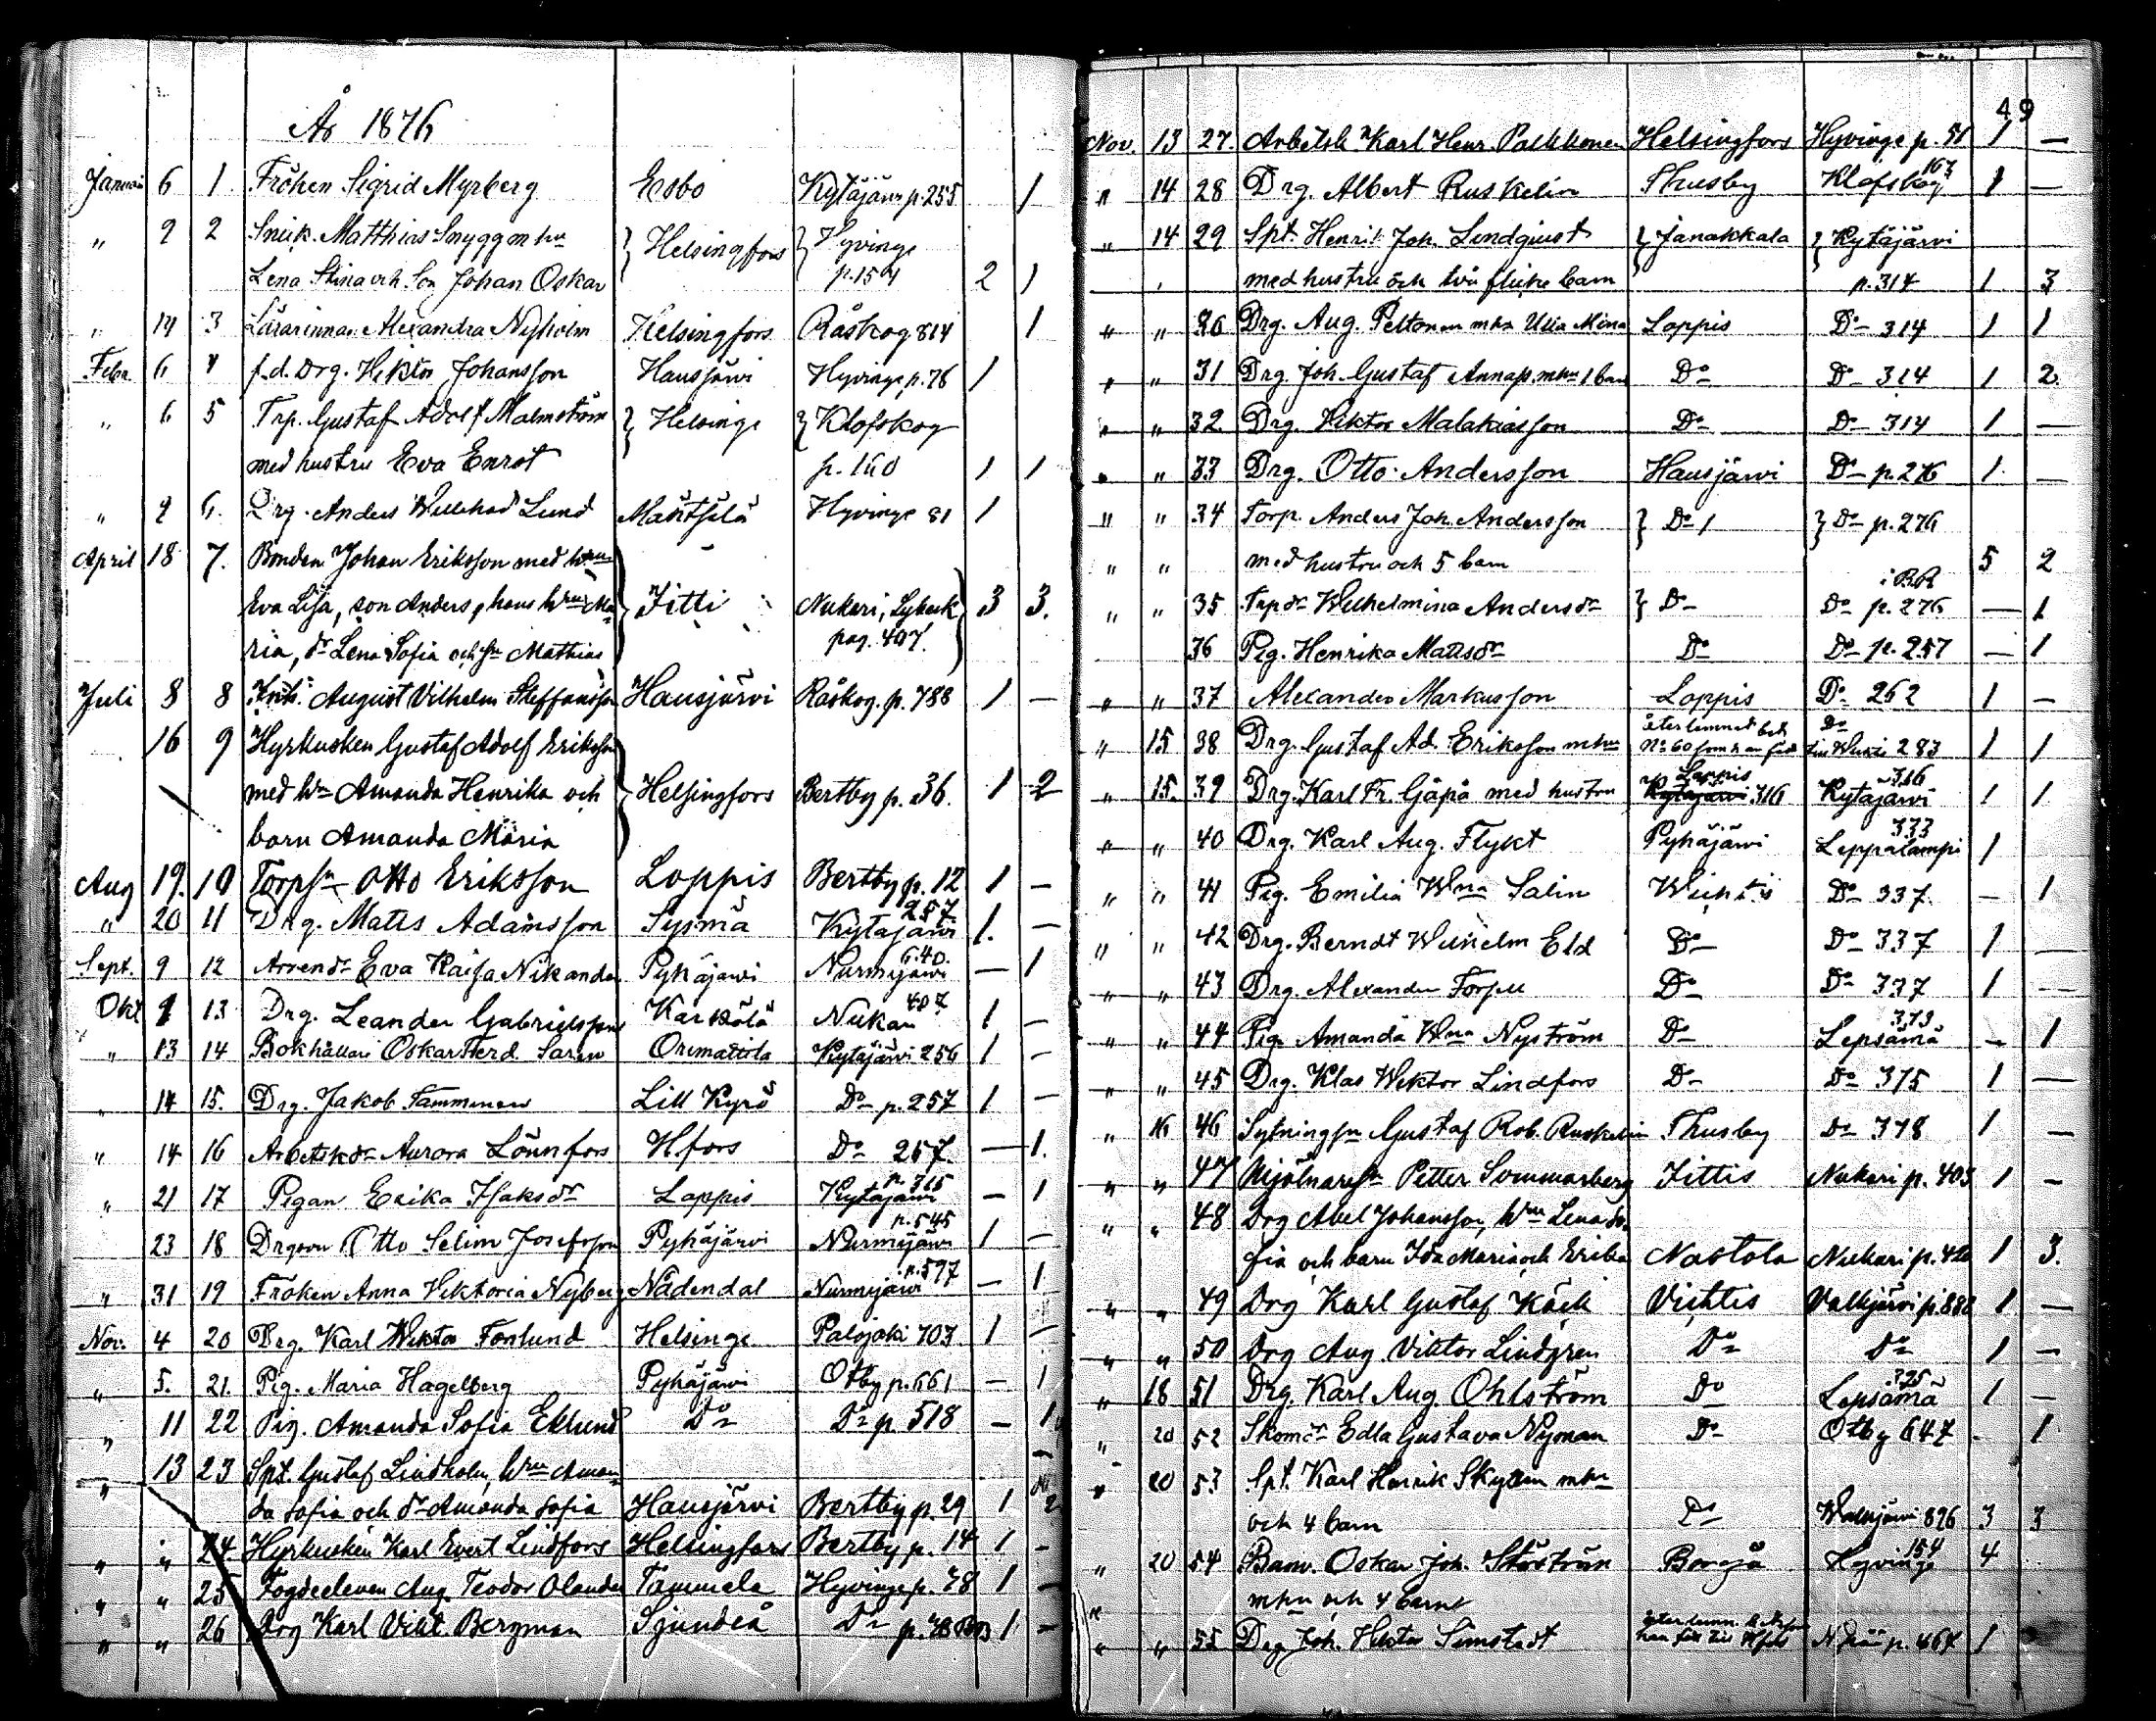 År 1876
Januari 6 1. Fröken Sigrid Myrberg Esbo Kytäjärvi p. 255 1
" 2 2 Snick. Matthias Snygg m hu } Helsingfors } Hyvinge
Lena Stina och Son Johan Oskar p. 154 2 1
" 14 3 Lärarinnan Alexandra Nyholm Helsingfors Råskog 814 1
Febr. 6 4 f.d. Drg. Hektor Johansson Hausjärvi Hyvinge p. 76 1
" 6 5 Trp. Gustaf Adolf Malmström } Helsinge } Klofskog
med hustru Eva Enrot p. 160 1 1
" 9 6. Drg. Anders Willehad Lund Mäntsälä Hyvinge 81 1
April 18 7. Bonden Johan Eriksson med hru
Eva Lisa, son Anders, hans hru Ma- Jitti Nukari, Syback 3 3.
ria, dr Lena Sofia och sn Mathias pag. 407.
Juli 8 8 August Vilhelm Steffansson Hausjärvi Råskog. p. 788 1 —
16 9 Hyrkusken Gustaf Adolf Eriksson
med hru Amanda Henrika och Helsingfors Bertby p. 36. 1 2
barn Amanda Maria
Aug 19. 10 Torpsn Otto Eriksson Loppis Bertby p. 12 1 —
" 20 11 Drg. Matts Adamsson Sysmä Kytäjärvi 257. 1. —
Sept. 9 12 Arrendr Eva Kaisa Nikander Pyhäjärvi Nurmijärvi 640. — 1
Okt 1 13 Drg. Leander Gabrielsson Kärkölä Nukari 407 1 —
" 13 14 Bokhållari Oskar Ferd Saren Orimattila Kytäjärvi 256 1 —
" 14 15. Drg. Jakob Tamminen Lill Kyrö Do p. 257 1 —
" 14 16 Arbetskdr Aurora Lönnfors Hfors Do 257. — 1.
" 21 17 Pigan Erika Isaksdr Loppis Kytäjärvi p. 315 — 1
23 18 Drgson Otto Selim Josefsson Pyhäjärvi Nurmijärvi p. 545 1 —
" 31 19 Fröken Anna Viktoria Nyberg Nådendal Nurmijärvi p. 597 — 1
Nov. 4 20 Drg. Karl Wiktor Forslund Helsinge Palojoki 703. 1 —
" 5. 21. Pig. Maria Hagelberg Pyhäjärvi Otby p. 661 — 1
" 11 22 Pig. Amanda Sofia Eklund Do Do p. 518 — 1
" 13 23 Spt. Gustaf Lindholm, hru Aman-
da Sofia och dr Amanda Sofia Hausjärvi Bertby p. 29 1 2
" " 24 Hyrkusken Karl Evert Lindfors Helsingfors Bertby p. 14 1 —
" " 25 Fogdeeleven Aug. Teodor Olander Tammela Hyvinge p. 78 1 —
" " 26 Drg Karl Vikt. Bergman Sjundeå Do p. 1 —
49
Nov. 13 27. Karl Henr. Palkkonen Helsingfors Hyvinge p. 51 1 —
" 14 28 Drg. Albert Ruskelin Thusby Klofskog 167 1 —
" 14 29 Spt. Henrik Joh. Lindquist } Janakkala } Kytäjärvi
med hustru och två flicke barn p. 314 1 3
" " 30 Drg. Aug. Peltonen mhu Ulla Mina Loppis Do 314 1 1
" " 31 Drg. Joh. Gustaf mhu 1 barn Do Do 314 1 2.
" " 32 Drg. Viktor Malakiasson Do Do 314 1 —
" " 33 Drg. Otto Andersson Hausjärvi Do p. 276 1. —
" " 34 Torp. Anders Joh. Andersson } Do } Do p. 276
" " med hustru och 5 barn 5 2
" " 35 Trpdr Wilhelmina Andersdr } Do Do p. 276 — 1
36 Pig. Henrika Mattsdr Do Do p. 257 — 1
" " 37 Alexander Markusson Loppis Do 262 1 —
" 15 38 Drg. Gustaf Ad. Eriksson mhu återlemnad bet. No 60 Do 283 1 1
" 15. 39 Drg. Karl Fr. Gäpä med hustru Loppis Kytäjärvi 316 Kytäjärvi 316 1 1
" " 40 Drg. Karl Aug. Flykt Pyhäjärvi Leppälampi 333 1
" " 41 Pig. Emilia Wma Salin Wichtis Do 337. — 1
" " 42 Drg. Berndt Wilhelm Eld Do Do 337 1 —
" " 43 Drg. Alexander Do Do 337 1 —
" " 44 Pig. Amanda Wma Nyström Do Lepsämä — 1
" " 45 Drg. Klas Wiktor Lindfors Do Do 375 1 —
" 16 46 Sytningsn Gustaf Rob. Ruskelin Thusby Do 378 1 —
" " 47 Mjölnaresn Petter Sommarberg Jittis Nukari p. 403 1 —
" " 48 Drg Abel Johansson, hru Lena So-
fia och barn Ida Maria och Erika Nastola Nukari p. 420 1 3.
" " 49 Drg Karl Gustaf Käck Vichtis Valkjärvi p. 888 1 —
" " 50 Drg Aug. Viktor Lindgren Do Do 1 —
" 18 51 Drg. Karl Aug. Ohlström Do Lepsämä 375 1 —
" 20 52 Skomdr Edla Gustava Nyman Do Otby 647 1
" 20 53 Spt. Karl Henrik Skyttem mhu
och 4 barn Do Walkjärvi 896 3 3
" 20 54 Banv. Oskar Joh. Borgå Hyvinge 154 4
" mhu och 4 barn
" " 55 Drg. Joh. Viktor Simstedt p. 464 1